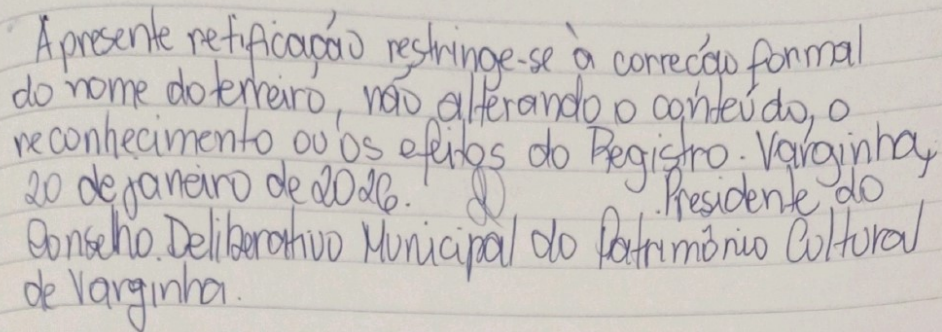 A presente retificação restringe-se à correção formal
do nome do terreiro, não alterando o conteúdo, o
reconhecimento ou os efeitos do Registro. Varginha,
20 de janeiro de 2026. Presidente do
Conselho Deliberativo Municipal do Patrimônio Cultural
de Varginha.